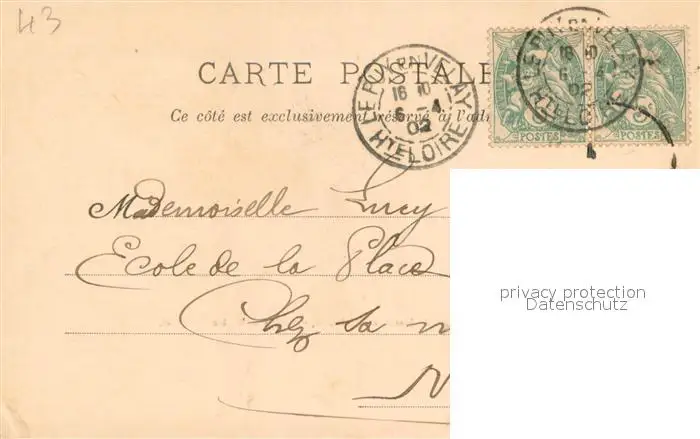 43
CARTE POSTALE
Ce côté est exclusivement réservé à l'adr
LE PUY EN VELAY
16 10
6 -4
02
HTE LOIRE
LE PUY EN VELAY
16 10
6 -4
02
HTE LOIRE
5c
POSTES
5c
POSTES
Mademoiselle Lucy
Ecole de la Place
Chez sa m
N
privacy protection
Datenschutz